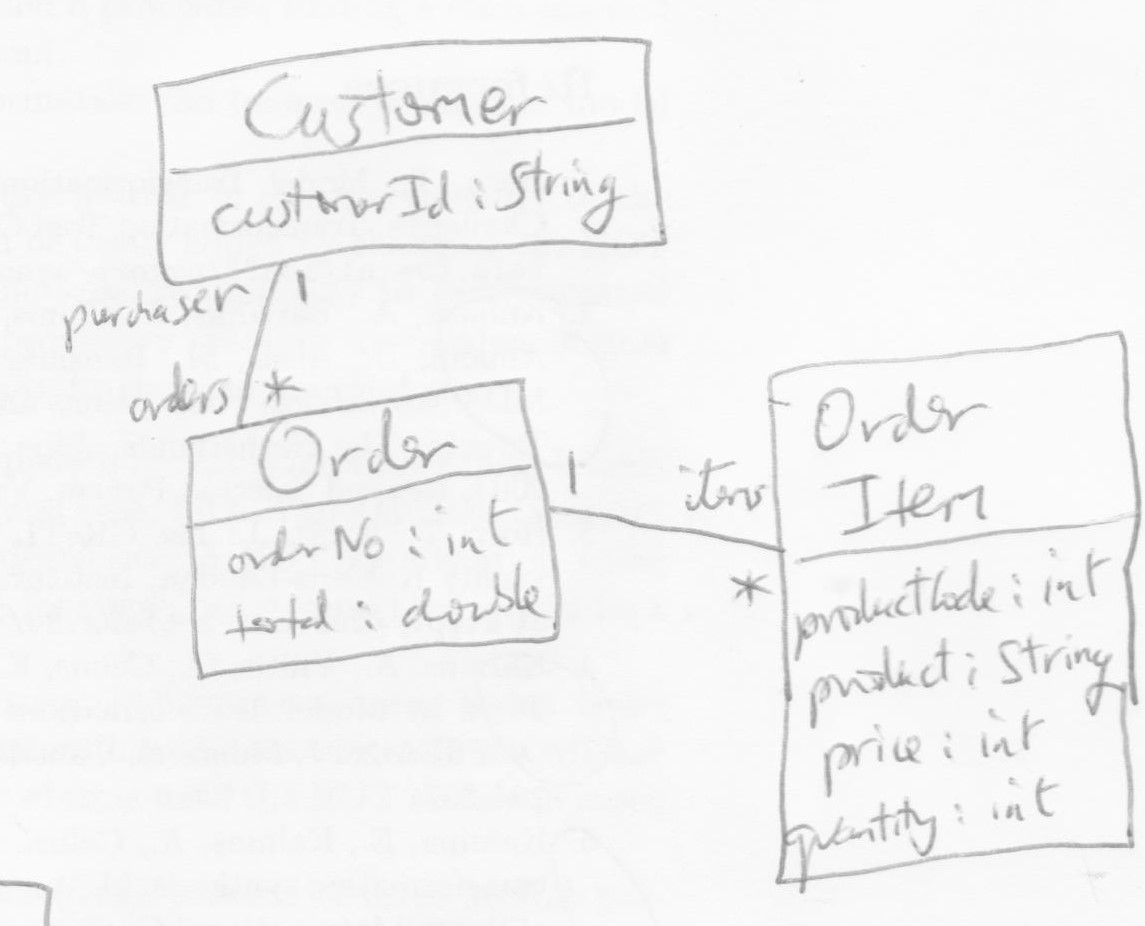 Customer
customerId : String
purchaser 1
orders *
Order
orderNo : int
total : double
1 items
*
Order
Item
productCode : int
product : String
price : int
quantity : int